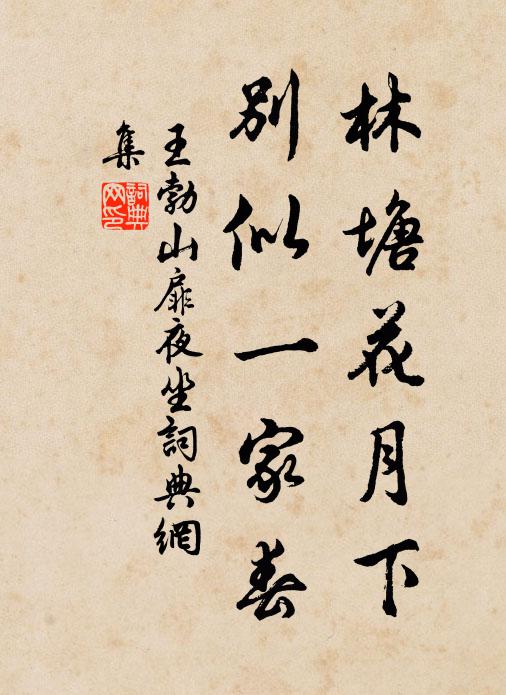 林塘花月下
别似一家春
王勃山扉夜坐詞典網
集
詞典網印